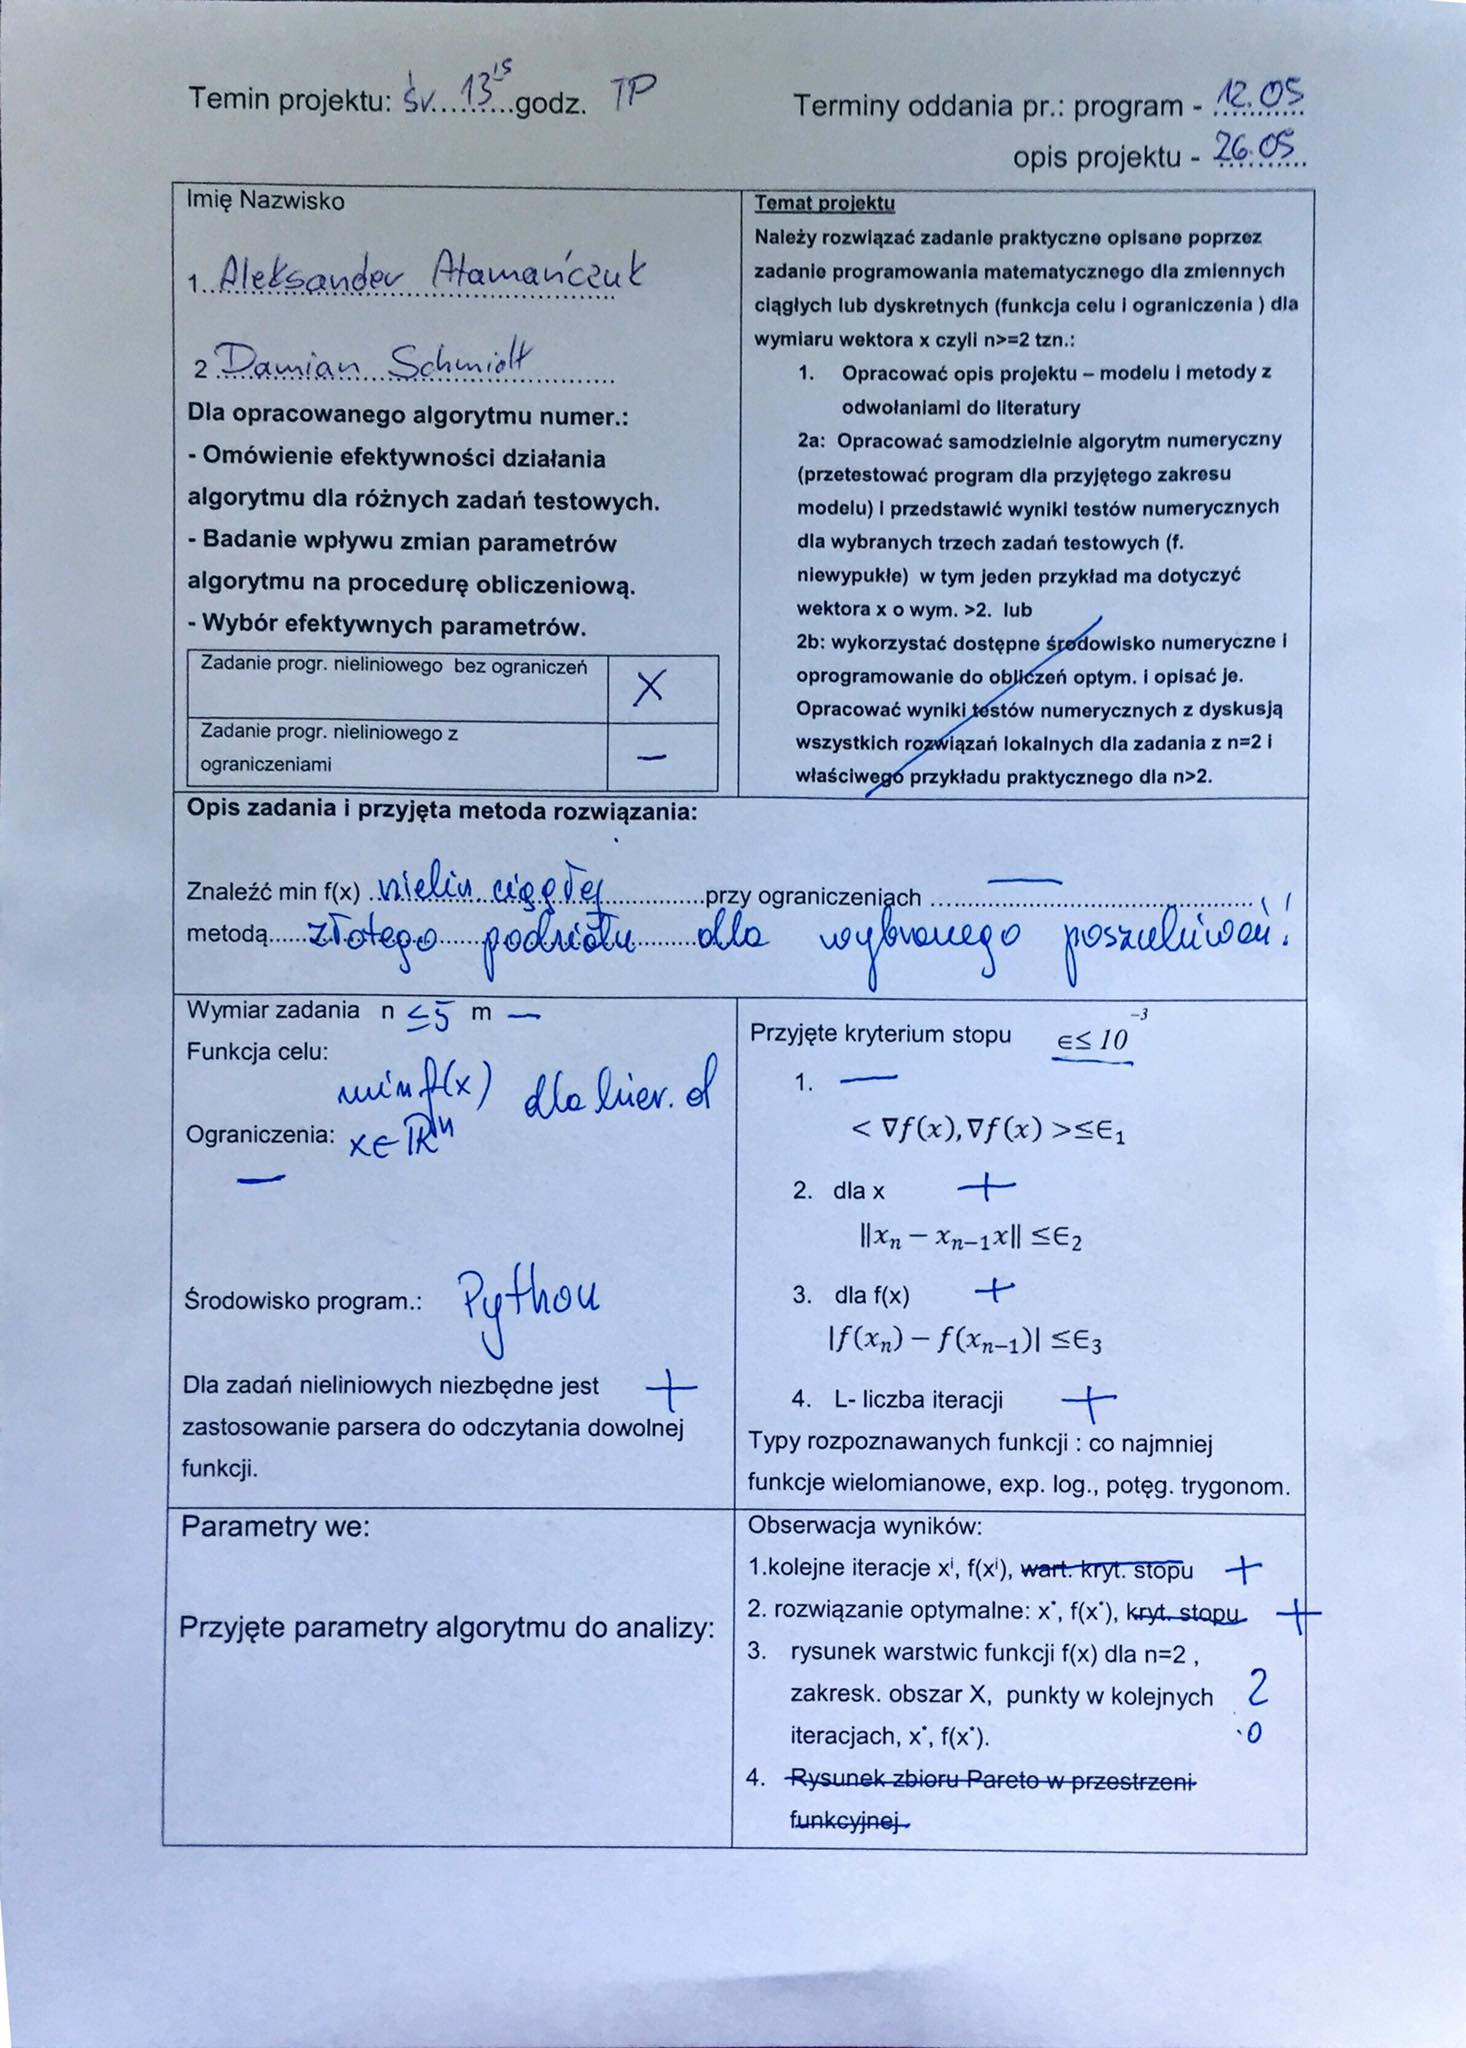 Temin projektu: śr. 13¹⁵ godz. TP
Terminy oddania pr.: program - 12.05
opis projektu - 26.05
Imię Nazwisko
1. Aleksander Atamańczuk
2 Damian Schmidt
Dla opracowanego algorytmu numer.:
- Omówienie efektywności działania
algorytmu dla różnych zadań testowych.
- Badanie wpływu zmian parametrów
algorytmu na procedurę obliczeniową.
- Wybór efektywnych parametrów.
Zadanie progr. nieliniowego bez ograniczeń X
Zadanie progr. nieliniowego z
ograniczeniami —
Temat projektu
Należy rozwiązać zadanie praktyczne opisane poprzez
zadanie programowania matematycznego dla zmiennych
ciągłych lub dyskretnych (funkcja celu i ograniczenia ) dla
wymiaru wektora x czyli n>=2 tzn.:
1. Opracować opis projektu – modelu i metody z
odwołaniami do literatury
2a: Opracować samodzielnie algorytm numeryczny
(przetestować program dla przyjętego zakresu
modelu) i przedstawić wyniki testów numerycznych
dla wybranych trzech zadań testowych (f.
niewypukłe) w tym jeden przykład ma dotyczyć
wektora x o wym. >2. lub
2b: wykorzystać dostępne środowisko numeryczne i
oprogramowanie do obliczeń optym. i opisać je.
Opracować wyniki testów numerycznych z dyskusją
wszystkich rozwiązań lokalnych dla zadania z n=2 i
właściwego przykładu praktycznego dla n>2.
Opis zadania i przyjęta metoda rozwiązania:
Znaleźć min f(x) nielin. ciągłej przy ograniczeniach —
metodą złotego podziału dla wybranego poszukiwań!
Wymiar zadania n ≤5 m —
Funkcja celu:
min f(x) dla kier. d
Ograniczenia: x∈ℝⁿ
—
Środowisko program.: Python
Dla zadań nieliniowych niezbędne jest +
zastosowanie parsera do odczytania dowolnej
funkcji.
Przyjęte kryterium stopu ∈≤ 10⁻³
1. —
< ∇f(x),∇f(x) >≤∈₁
2. dla x +
‖xₙ − xₙ₋₁x‖ ≤∈₂
3. dla f(x) +
|f(xₙ) − f(xₙ₋₁)| ≤∈₃
4. L- liczba iteracji +
Typy rozpoznawanych funkcji : co najmniej
funkcje wielomianowe, exp. log., potęg. trygonom.
Parametry we:
Przyjęte parametry algorytmu do analizy:
Obserwacja wyników:
1.kolejne iteracje xⁱ, f(xⁱ), wart. kryt. stopu +
2. rozwiązanie optymalne: x*, f(x*), kryt. stopu +
3. rysunek warstwic funkcji f(x) dla n=2 ,
zakresk. obszar X, punkty w kolejnych
iteracjach, x*, f(x*).
4. Rysunek zbioru Pareto w przestrzeni
funkcyjnej